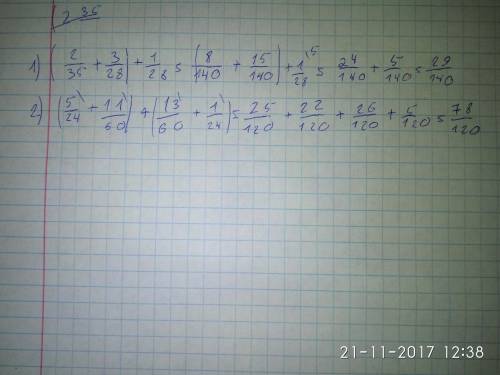 2 36
1) (2/35 + 3/28) + 1/28 = (8/140 + 15/140) + 1/28 ⁵ = 24/140 + 5/140 = 29/140
2) (5/24 + 11/60) + (13/60 + 1/24) = 25/120 + 22/120 + 26/120 + 5/120 = 78/120
21-11-2017 12:38